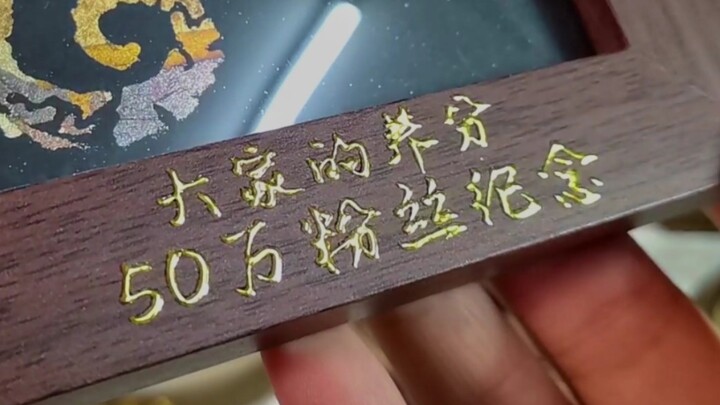 大家的养分
50万粉丝纪念